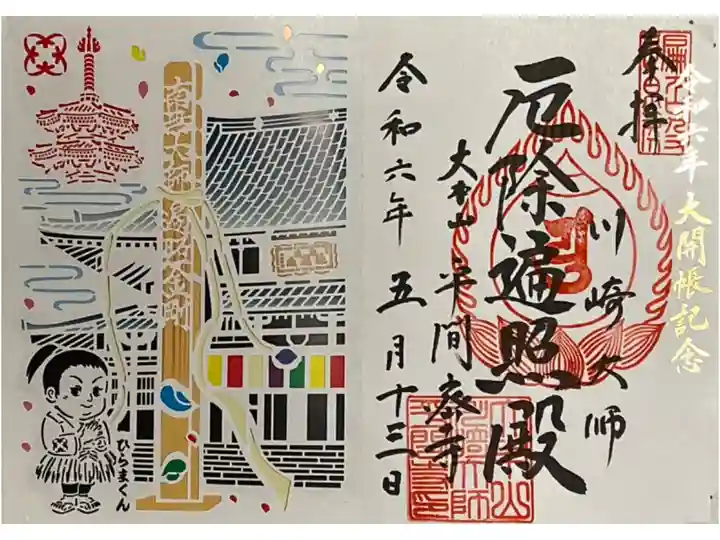 令和六年 大開帳記念
奉拝
川崎大師
厄除遍照殿
大本山 平間寺
令和六年 五月十三日
南無大師遍照金剛
ひらまくん